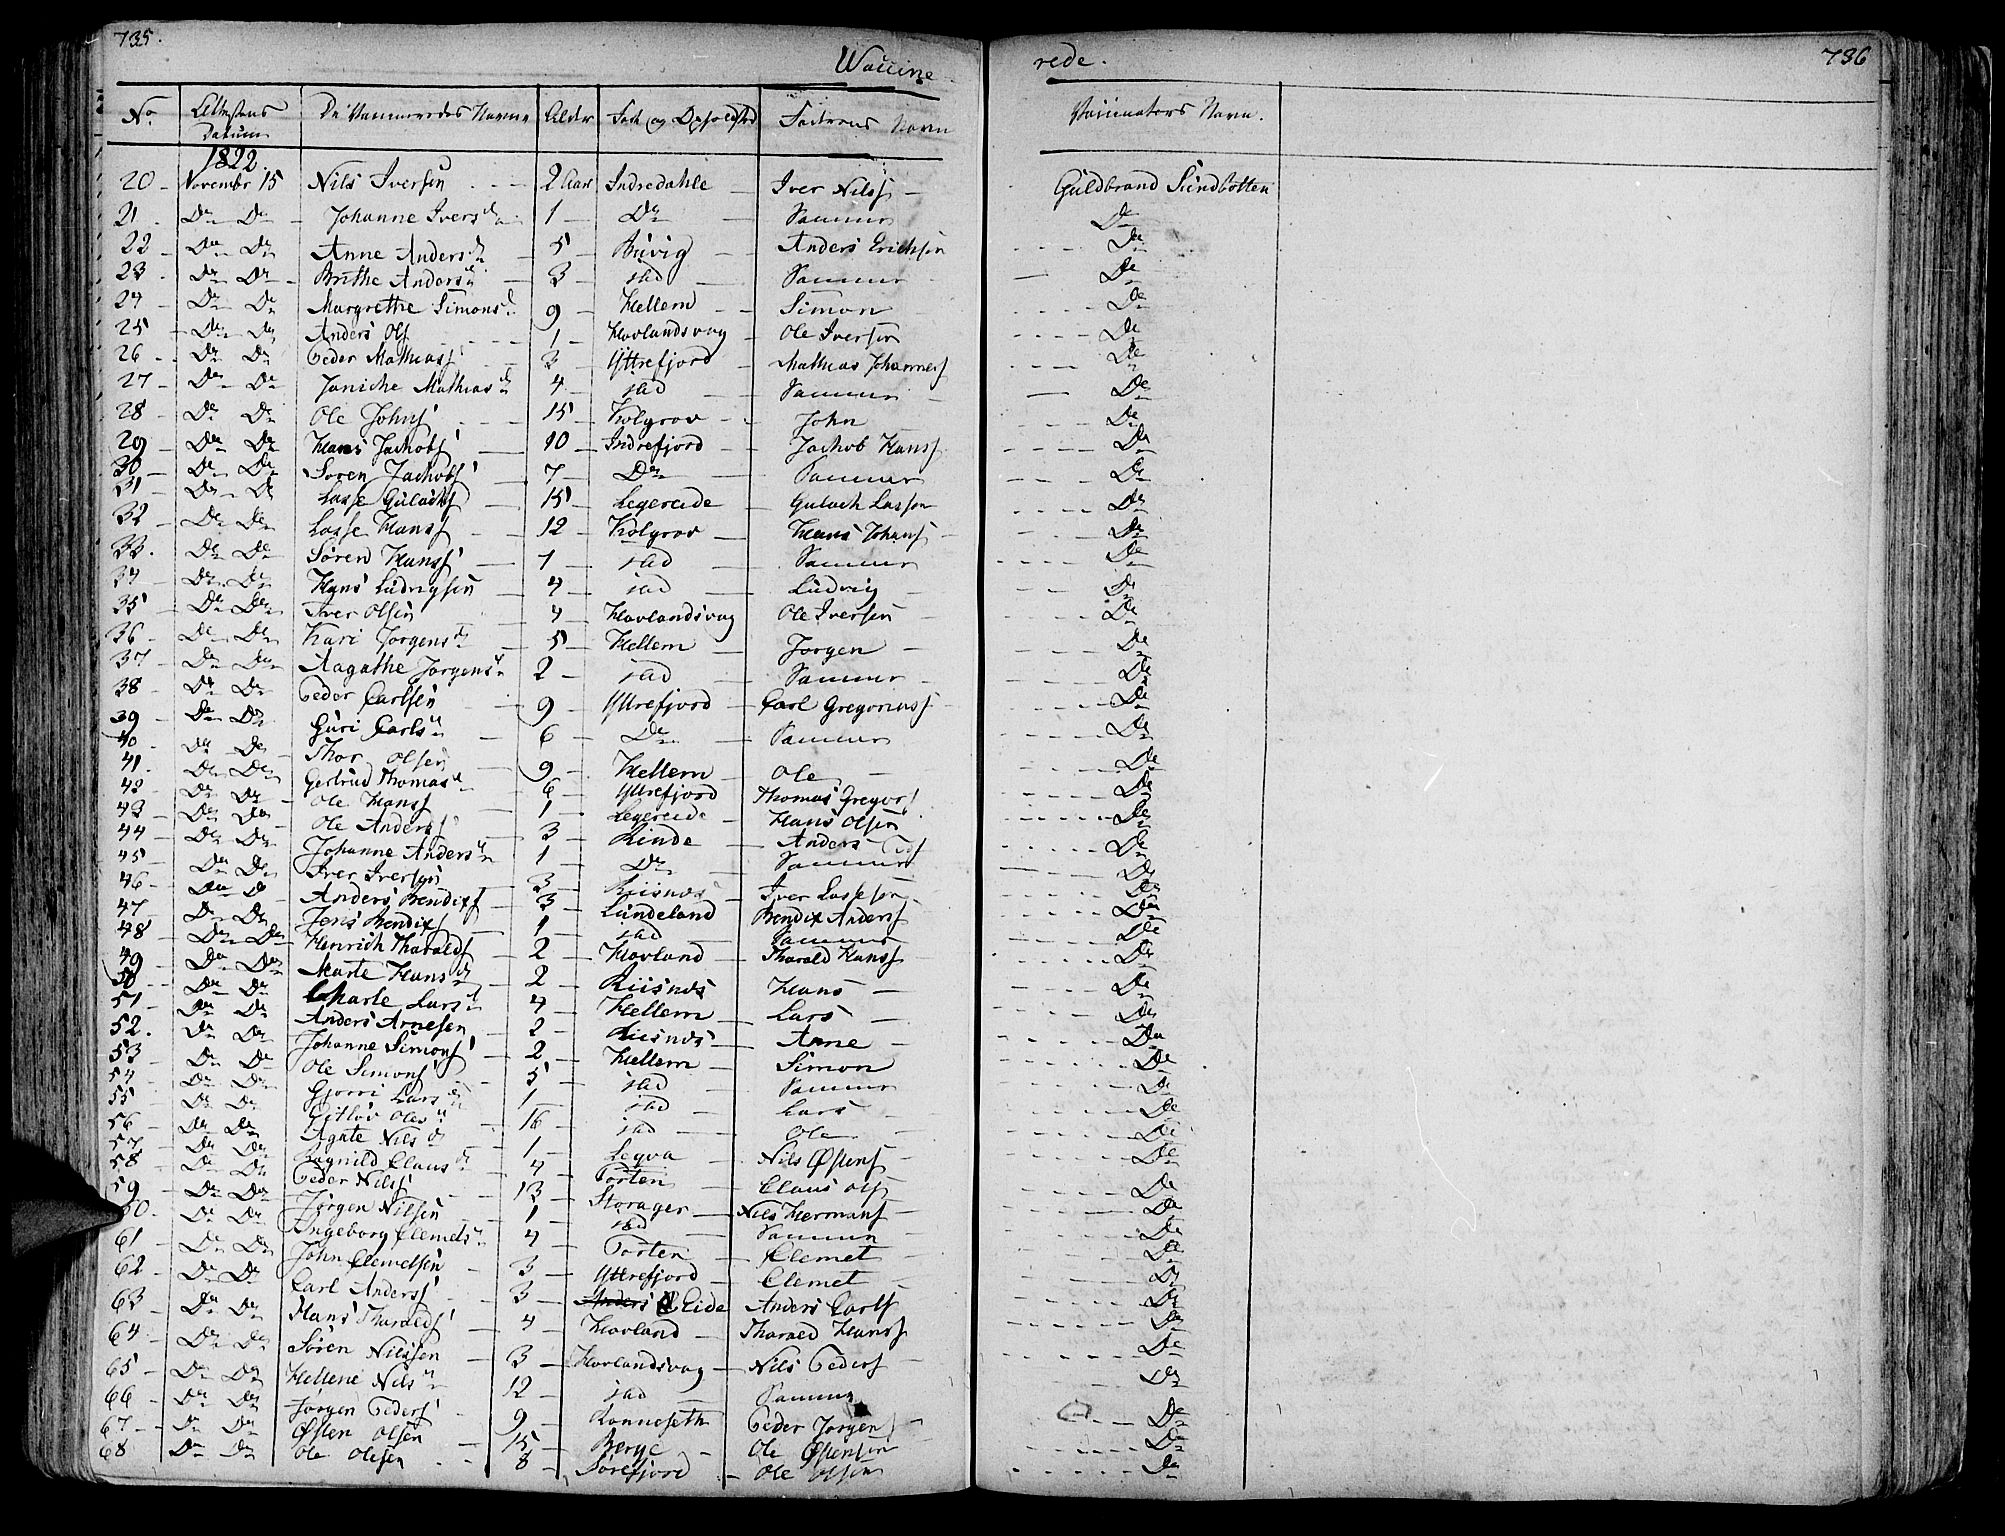 735.
Waccine
rede.
736
No
Attestens Datum
De Vaccineredes Navne
Alder
Føde og Opholdsted
Fadrens Navn
Vaccinators Navn.
1822.
20 Novembr 15 Nils Iversen 2 Aar Indredahle Iver Nilss Guldbrand Sundbotten
21. Do Do Johanne Iversd 1 Do Sammes Do
22 Do Do Anne Andersd 5 Buvig Anders Erichsen Do
23. Do Do Brithe Andersd 3 std Sammes Do
24 Do Do Margrethe Simonsd 9 Hellem Simon Do
25 Do Do Anders Ols 1 Hovlandsvag Ole Iversen Do
26 Do Do Peder Mathiass 3 Yttrefjord Mathias Johanness Do
27 Do Do Janiche Mathiasd 4 std Sammes Do
28 Do Do Ole Johns 15 Kolgrov John Do
29 Do Do Hans Jachobs 10 Indrefjord Jachob Hanss Do
30 Do Do Soren Jachobs 7 Do Sammes Do
31 Do Do Lasse Gulachs 15 Legereide Gulach Lassen Do
32 Do Do Lasse Hanss 12 Kolgrov Hans Johans Do
33. Do Do Søren Hanss 1 std Sammes Do
34 Do Do Hans Ludvigsen 4 std Ludvig Do
35 Do Do Iver Olsen 4 Hovlandsvag Ole Iversen Do
36 Do Do Kari Jørgensd 5 Hellem Jorgen Do
37 Do Do Aagathe Jørgensd 2 std Sammes Do
38 Do Do Peder Carlsen 9 Yttrefjord Carl Gregoriuss Do
39 Do Do Guri Carlsd 6 Do Sammes Do
40 Do Do Thor Olsen 9 Hellem Ole Do
41. Do Do Gertrud Thomasd 6 Yttrefjord Thomas Gregors Do
42 Do Do Ole Hanss 1 Legereide Hans Olsen Do
43 Do Do Ole Anderss 3 Rinde Anders Peds Do
44 Do Do Johanne Andersd 1 Do Sammes Do
45 Do Do Iver Iversen 3 Riisnes Iver Lassesen Do
46 Do Do Anders Bendixs 3 Lundeland Bendix Anderss Do
47 Do Do Jens Bendixs 1 std Sammes Do
48 Do Do Henrich Tharalds 2 Hovland Tharald Hanss Do
49 Do Do Marte Hansd 2 Riisnes Hans Do
50 Do Do Charle Larsd 4 Hellem Lars Do
51 Do Do Anders Arnesen 2 Riisnes Arne Do
52. Do Do Johanne Simons 2 Hellem Simon Do
53 Do Do Ole Simons 5 std Sammes Do
54 Do Do Gjorri Larsd 1 std Lars Do
55 Do Do Olesd 16 std Ole Do
56 Do Do Agate Nilsd 1 Legva Nils Østens Do
57 Do Do Ragnild Clausd 4 Porten Claus Ols Do
58 Do Do Peder Nilss 13 Storager Nils Hermans Do
59 Do Do Jørgen Nilsen 1 sted Sammes Do
60. Do Do Ingeborg Clemetsd 4 Porten Clemet Do
61 Do Do John Clemetsen 3 Yttrefjord Clemet Do
62 Do Do Carl Anderss 3 Eide Anders Carls Do
63 Do Do Hans Tharalds 4 Hovland Tharald Hanss Do
64 Do Do Søren Nilssen 3 Hovlandsvag Nils Peders Do
65 Do Do Hellene Nilsd 12 sted Sammes Do
66 Do Do Jørgen Peders 9 Ronneseth Peder Jorgens Do
67 Do Do Østen Olsen 15 Berge Ole Østensen Do
68 Do Do Ole Olesen 8 Sørefjord Ole Olsen Do